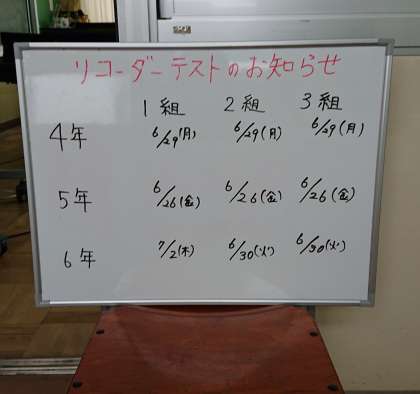 リコーダーテストのお知らせ
1組 2組 3組
4年 6/29(月) 6/29(月) 6/29(月)
5年 6/26(金) 6/26(金) 6/26(金)
6年 7/2(木) 6/30(火) 6/30(火)